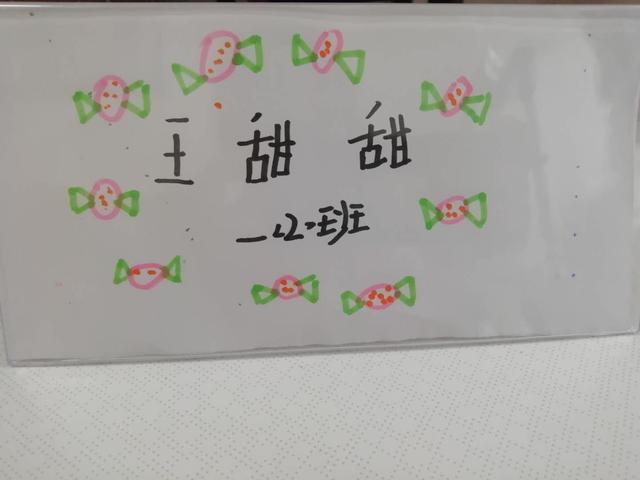 王甜甜
一(2)班